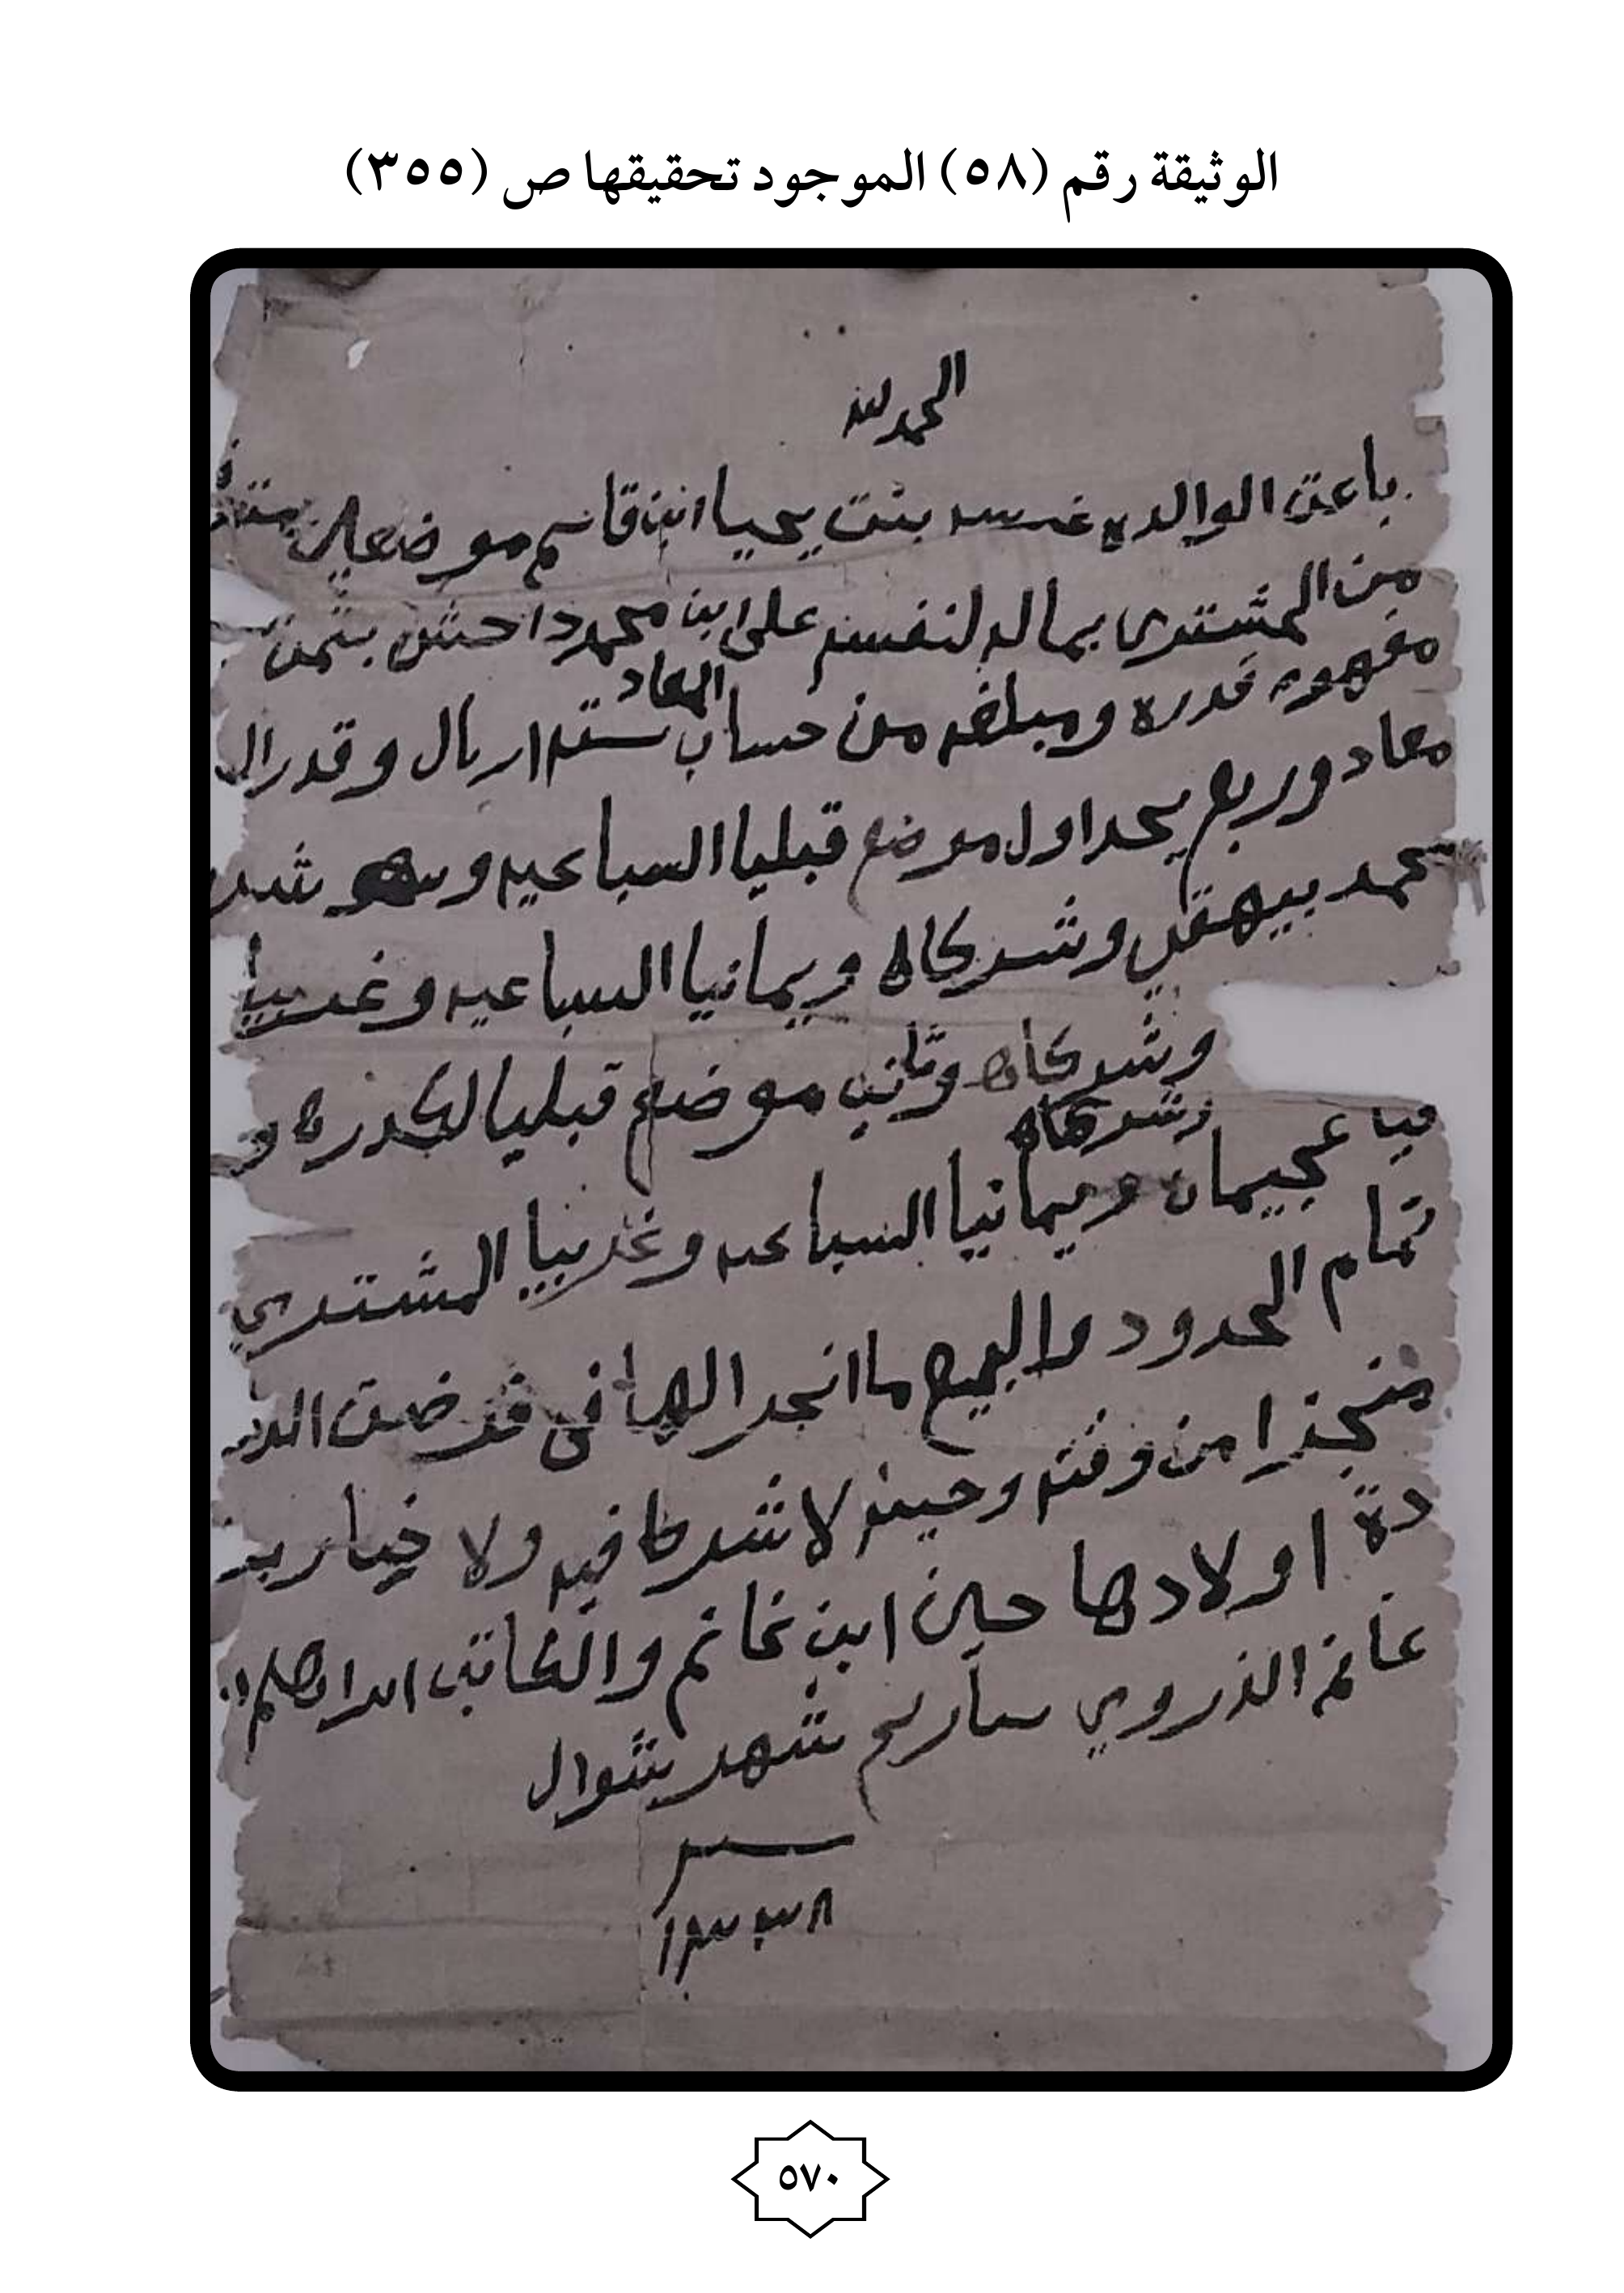 الوثيقة رقم (٥٨) الموجود تحقيقها ص (٣٥٥)
الحمد لله
باعت الوالده بنت يحيا ابن قاسم موضعين
من المشتري بماله لنفسه على ابن محمد داحش بثمن
مفهوم قدره ومبلغه من حساب المعاد سته اريال وقدر ال
معاد وربع يحد اول موضع قبليا السباعيه و
محمد بيهقي وشركاه ويمانيا السباعيه وغربيا
وشركاه وثاني موضع قبليا الكدره و
قيا عجيمان وشركاه ويمانيا السباعيه وغربيا المشتري
تمام الحدود والبيع ما انجر الها في فرضت الد
منجزا من وقته وحينه لا شركا فيه ولا خيار بر
دة اولادها حسين ابن غانم والكاتب ابراهيم
غانم الذروي بتاريخ شهر شوال
٥٧٠